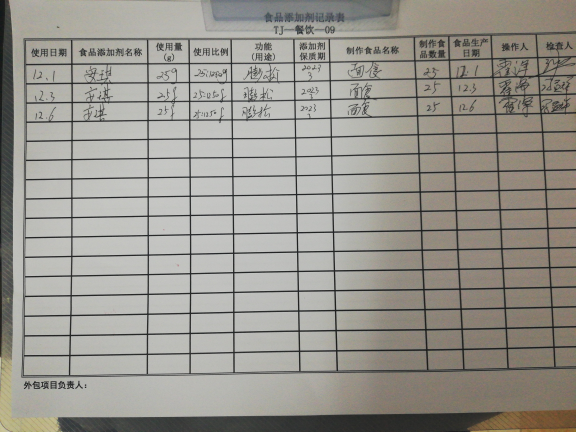 食品添加剂记录表
TJ—餐饮—09
使用日期 食品添加剂名称 使用量(g) 使用比例 功能(用途) 添加剂保质期 制作食品名称 制作食品数量 食品生产日期 操作人 检查人
12.1 安琪 25g 25:1250g 膨松 2023 3 面食 25 12.1
12.3 安琪 25g 25:1250g 膨松 2023 3 面食 25 12.3
12.6 安琪 25g 25:1250g 膨松 2023 3 面食 25 12.6
外包项目负责人：